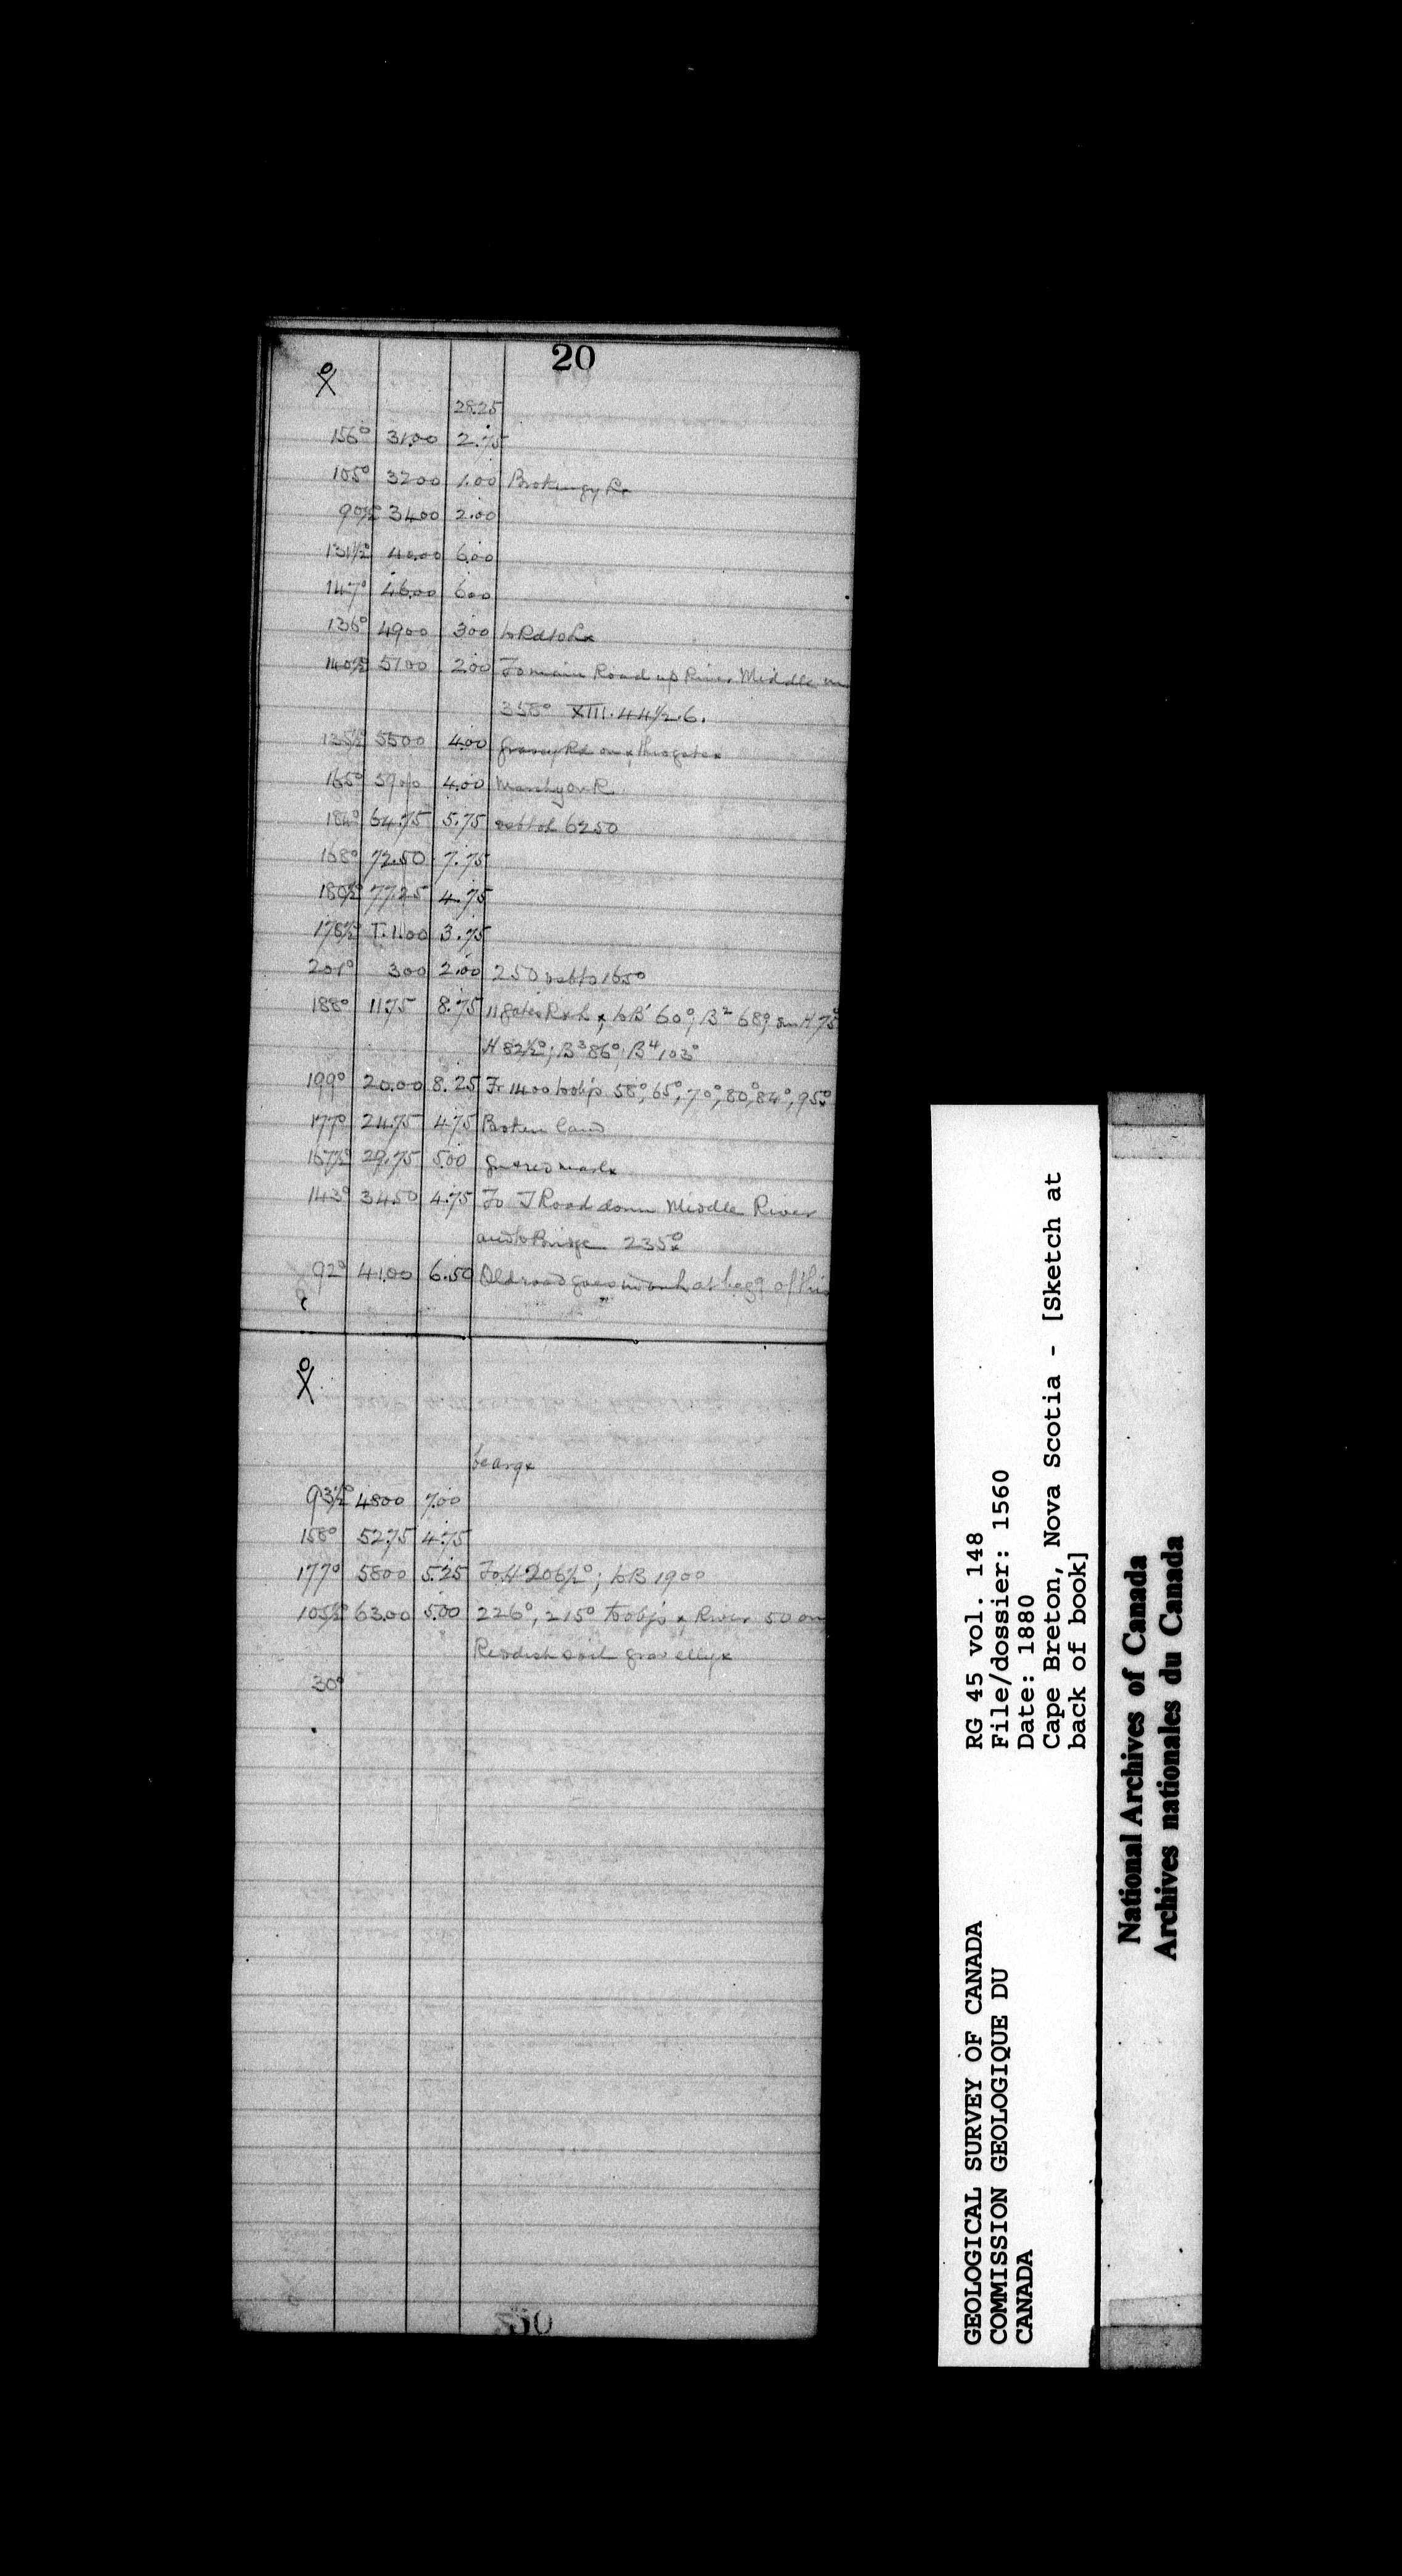 20
28.25
156° 31.00 2.75
105° 3200 1.00
90½° 3400 2.00
131½° 40.00 6.00
147° 46.00 600
136° 4900 300 to Rd to L x
140½° 5100 2.00 To main Road up River Middle
358° XIII. 44½. 6.
135½° 5500 4.00 Grassy Rd on x
165° 5900 4.00 R
184° 64.75 5.75 6250
168° 72.50 7.75
180½° 77.25 4.75
178½° T.1.00 3.75
201° 300 2.00 250 165°
188° 11.75 8.75 gate R x L x, to B' 60°, B² 68°, H 75°
H 82½°; B³ 86°; B⁴ 103°
199° 20.00 8.25 Fr 1400 to objs 58°, 65°, 70°, 80°, 84°, 95°
177° 24.75 4.75 Broken land
167½° 29.75 5.00
143° 34.50 4.75 To T Road down Middle River
and to Bridge 235°
92° 41.00 6.50 Old road goes at begg of this
bearg x
93½° 4800 7.00
158° 52.75 4.75
177° 5800 5.25 To H 206½°; to B 190°
105½° 63.00 5.00 226°, 215° to objs x River 50 on
Reddish soil gravelly x
30°
GEOLOGICAL SURVEY OF CANADA
COMMISSION GEOLOGIQUE DU
CANADA
RG 45 vol. 148
File/dossier: 1560
Date: 1880
Cape Breton, Nova Scotia - [Sketch at
back of book]
National Archives of Canada
Archives nationales du Canada